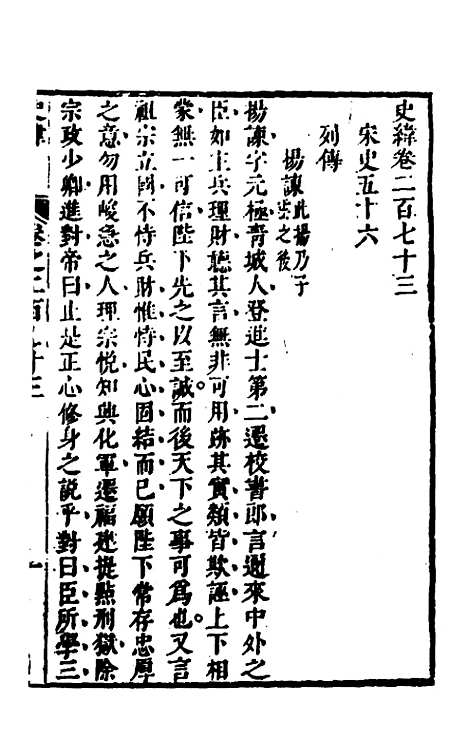 史緯卷二百七十三
宋史五十六
列傳
楊諫此楊乃子棐之後
楊諫字元極青城人登進士第二遷校書郎言邇來中外之
臣如主兵理財聽其言無非可用跡其實類皆欺誣上下相
蒙無一可信陛下先之以至誠而後天下之事可為也又言
祖宗立國不恃兵財惟恃民心固結而已願陛下常存忠厚
之意勿用峻急之人理宗悅知興化軍遷福建提點刑獄除
宗政少卿進對帝曰止是正心修身之說乎對曰臣所學三